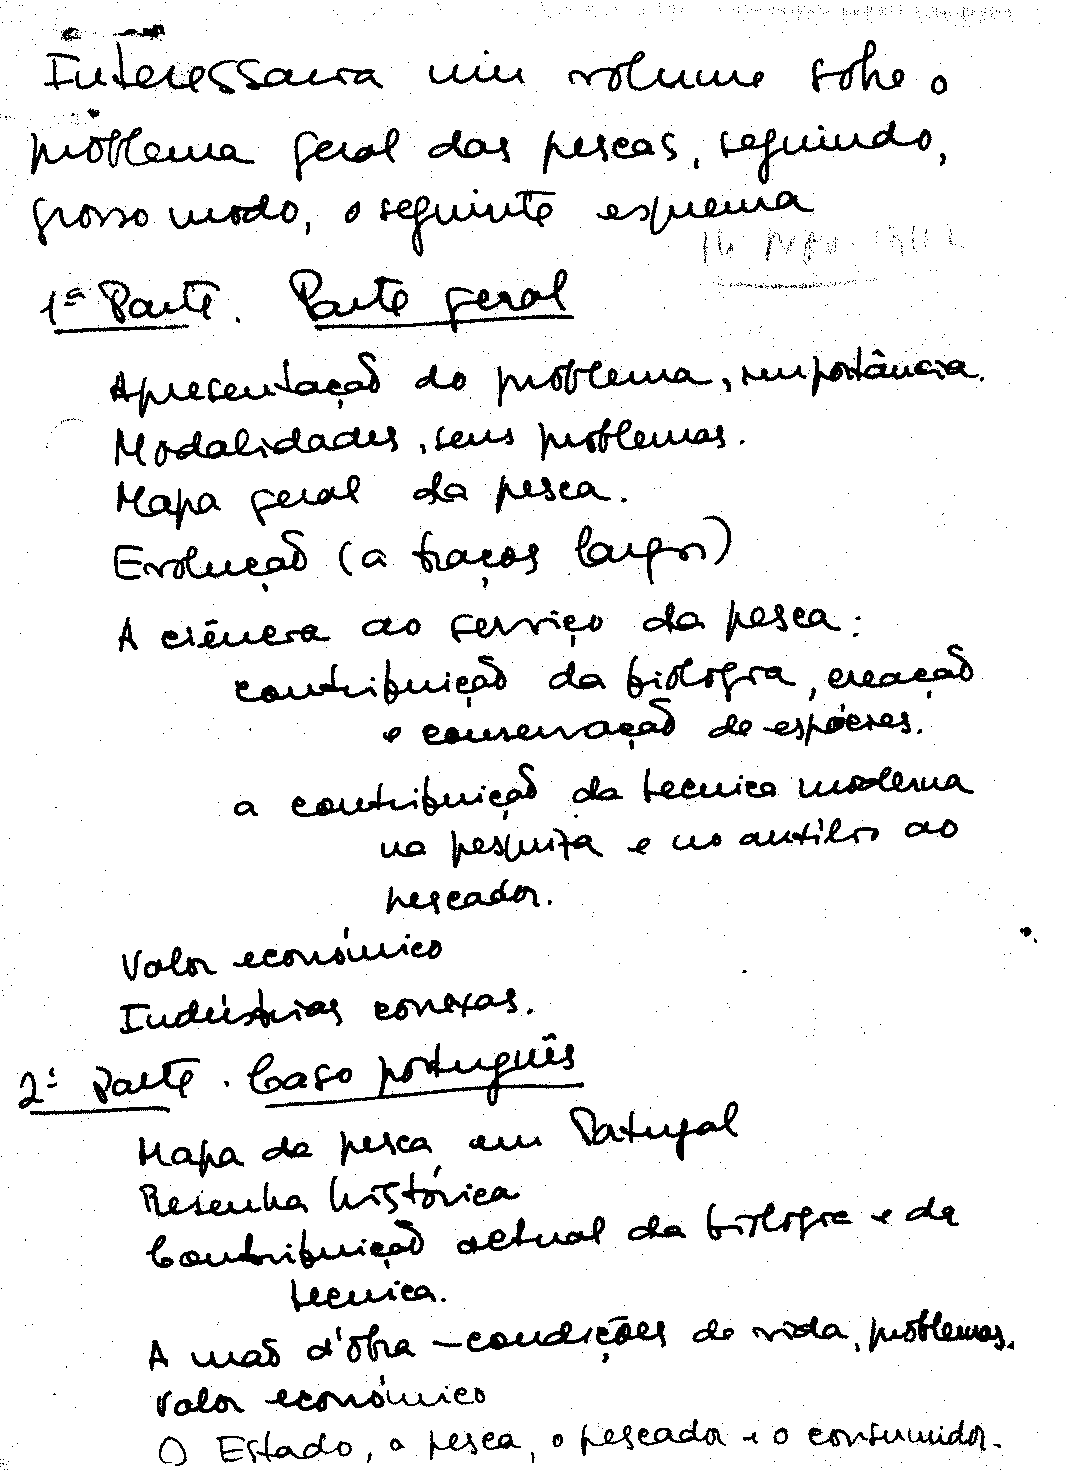 Interessaria um volume sobre o
problema geral das pescas, seguindo,
grosso modo, o seguinte esquema
1ª Parte. Parte geral
Apresentação do problema, importância.
Modalidades, seus problemas.
Mapa geral da pesca.
Evolução (a traços largos)
A ciência ao serviço da pesca:
contribuição da biologia, creação
e conservação de espécies.
a contribuição da tecnica moderna
na pesquiza e no auxilio ao
pescador.
Valor económico
Indústrias conexas.
2ª Parte. Caso português
Mapa da pesca em Portugal
Resenha histórica
Contribuição actual da biologia e da
tecnica.
A mão d'obra – condições de vida, problemas.
Valor económico
O Estado, a pesca, o pescador e o consumidor.